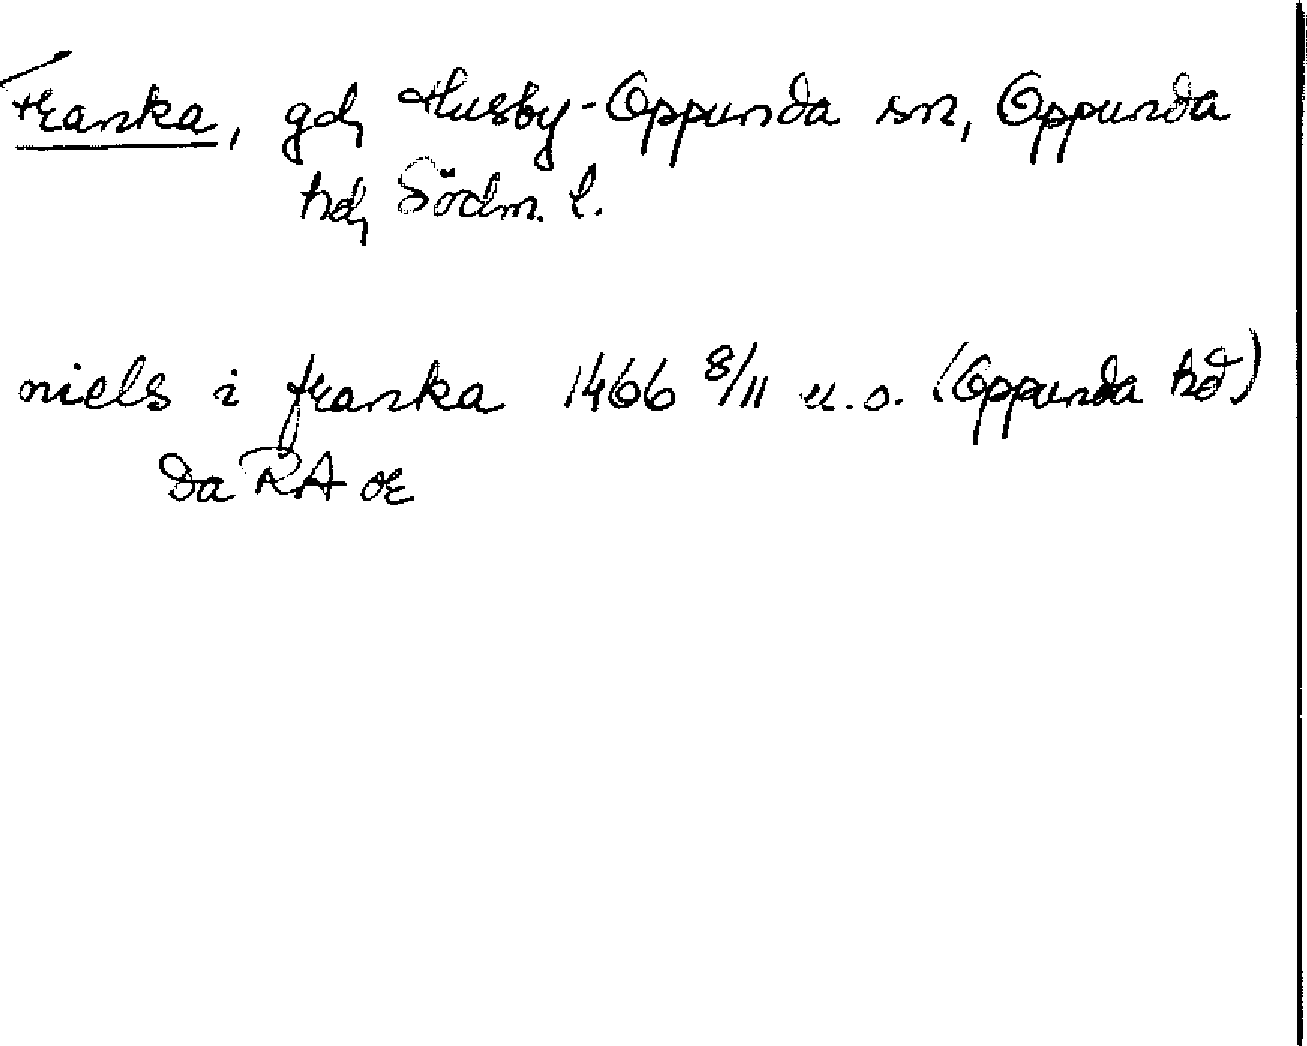 Franka, gd, Husby-Oppunda sn, Oppunda
hd, Södm. l.
niels i franka 1466 8/11 u.o. (Oppunda hd)
Da RA or